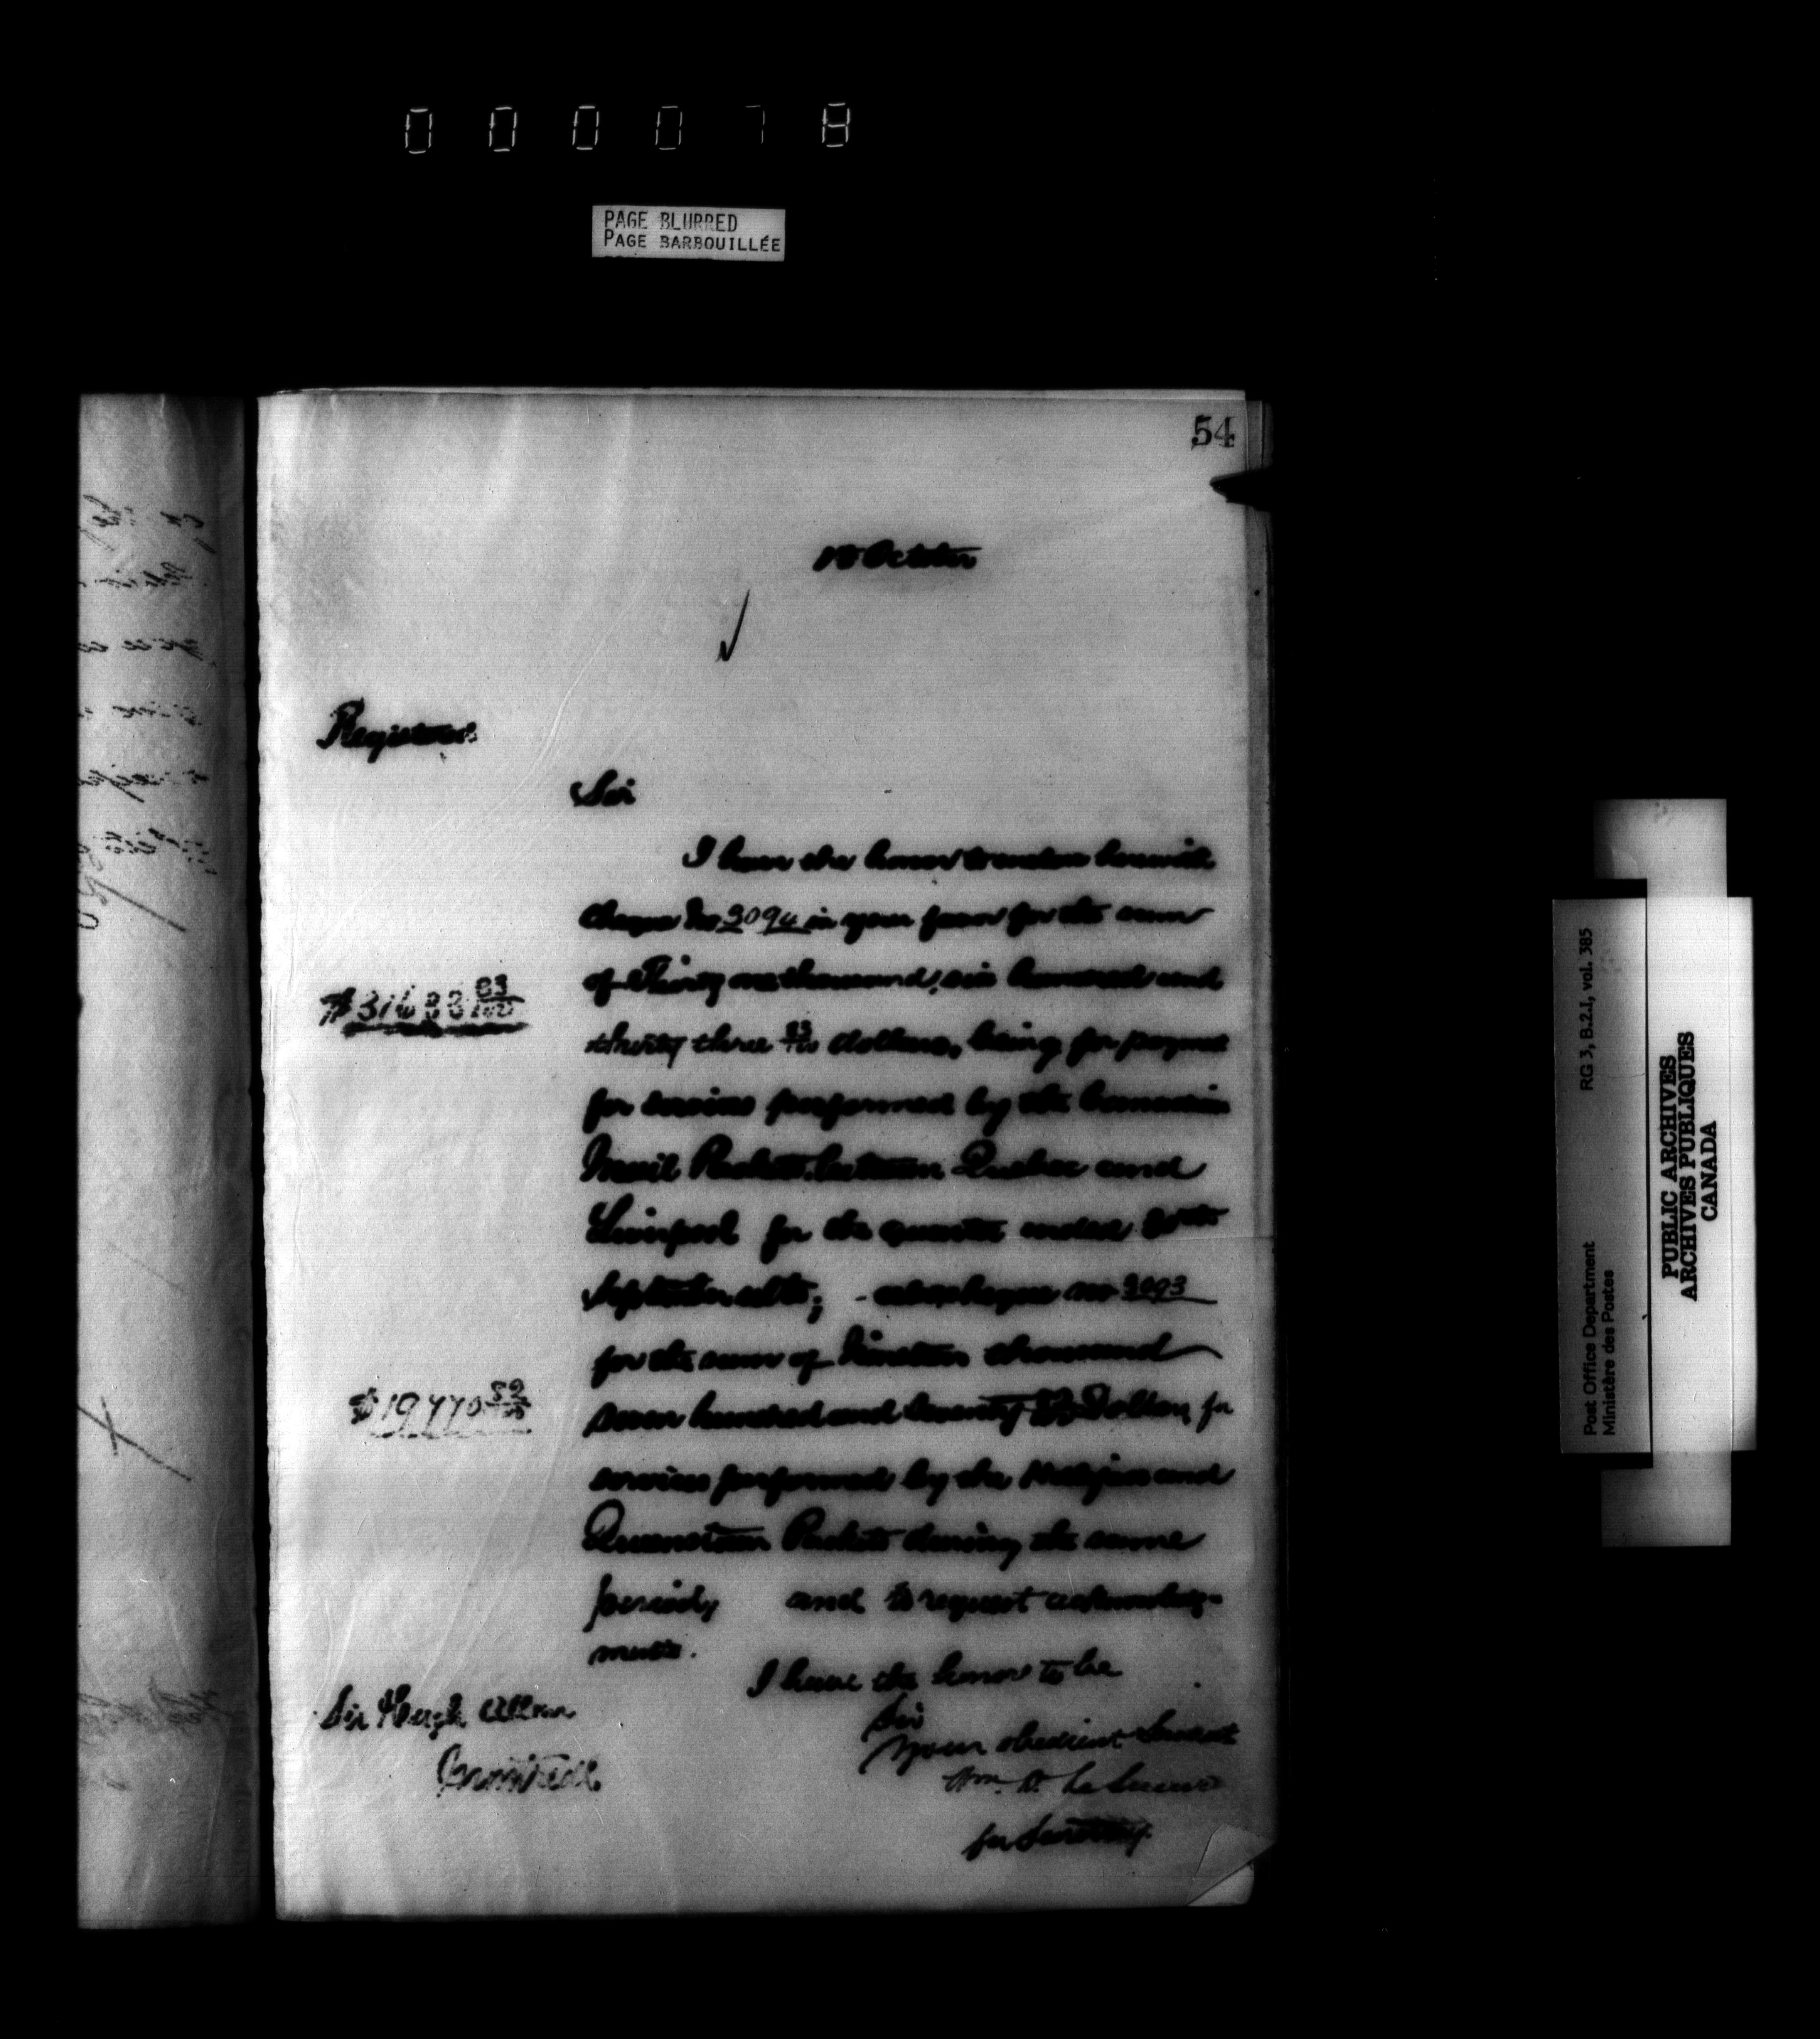 000078
PAGE BLURRED
PAGE BARBOUILLÉE
54
October
Registered
Sir
I have the honor to enclose herewith
cheque No 3094 in your favor for the sum
of Thirty one thousand, six hundred and
$31633 83/100
thirty three 83/100 dollars, being for payment
for services performed by the Canadian
Mail Packets between Quebec and
Liverpool for the quarter ended 30th
September ulto; - also cheque no 3093
for the sum of Nineteen thousand
$19770 52/100
seven hundred and seventy 52/100 Dollars for
services performed by the and
Queenstown Packets during the same
period, and to request acknowledg-
ment.
I have the honor to be
Sir
Your obedient Servant
Wm. D. Le Sueur
for Secretary.
Sir Hugh Allan
Montreal
RG 3, B.2.I, vol. 385
Post Office Department
Ministère des Postes
PUBLIC ARCHIVES
ARCHIVES PUBLIQUES
CANADA